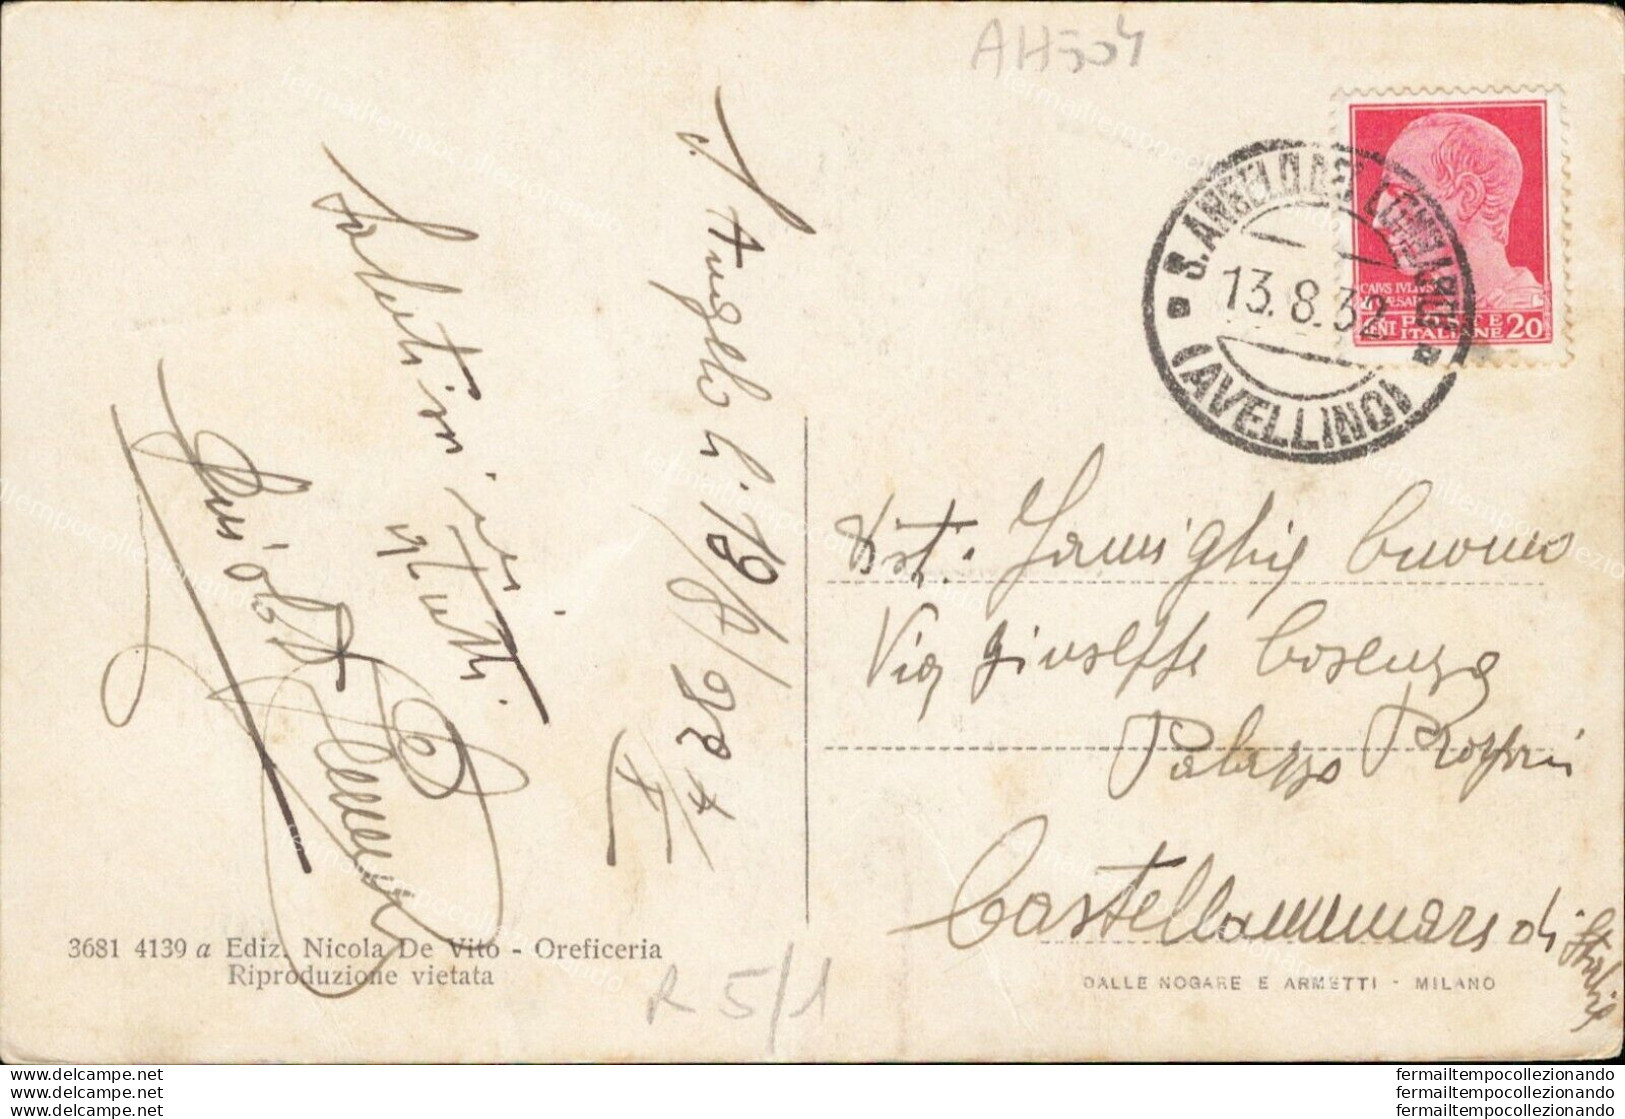 AH504
S. ANGELO DEI LOMBARDI
13.8.32
(AVELLINO)
CAIVS IVLIVS
CAESAR
CENT POSTE ITALIANE 20
S. Angelo L. 13/8/932
X
Saluti
a tutti
Dist. Famiglia Cuomo
Via Giuseppe Cosenza
Palazzo
Castellammare di Stabia
3681 4139 a Ediz. Nicola De Vito - Oreficeria
Riproduzione vietata
R 5/1
DALLE NOGARE E ARMETTI - MILANO
www.delcampe.net
www.delcampe.net
www.delcampe.net
fermailtempocollezionando
fermailtempocollezionando
fermailtempocollezionando